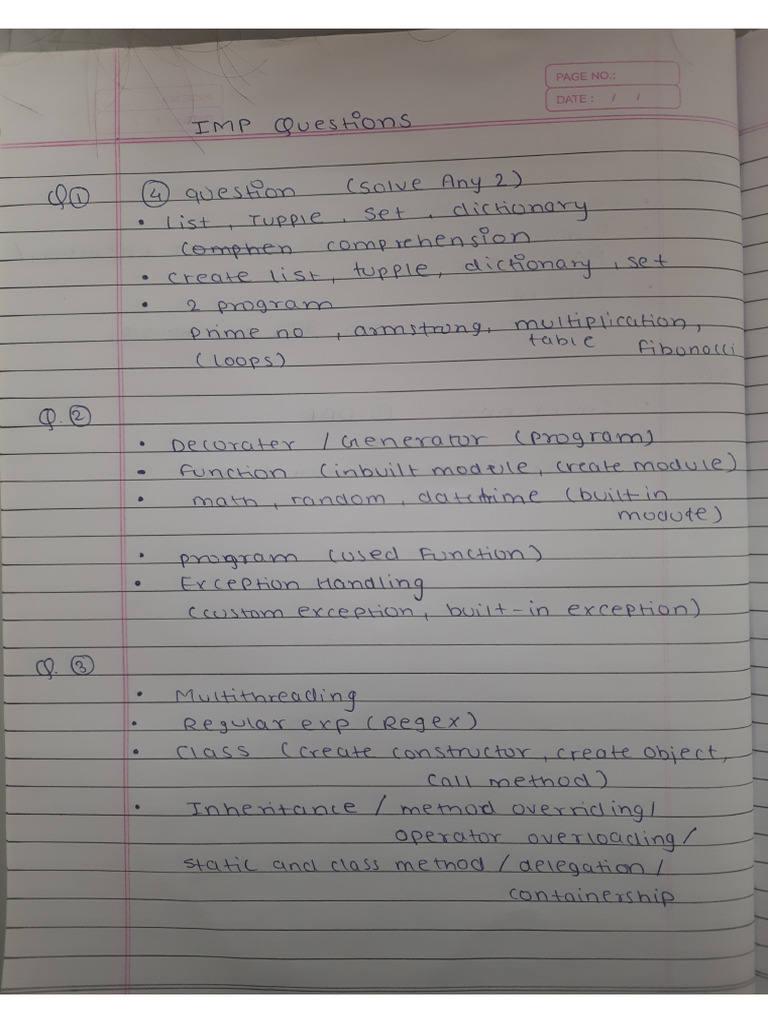 PAGE NO.:
DATE: / /
IMP Questions
Q① ④ question (solve Any 2)
• List, Tupple, set, dictionary
(comphen comprehension
• create list, tupple, dictionary, set
• 2 program
prime no, armstrong, multiplication,
table fibonacci
(loops)
Q.②
• Decorater / Generator (program)
• Function (inbuilt module, create module)
• math, random, datetime (built-in
module)
• program (used function)
• Exception Handling
(custom exception, built-in exception)
Q.③
• Multithreading
• Regular exp (Regex)
• Class (create constructor, create object,
call method)
• Inheritance / method overriding/
operator overloading/
static and class method / delegation/
containership